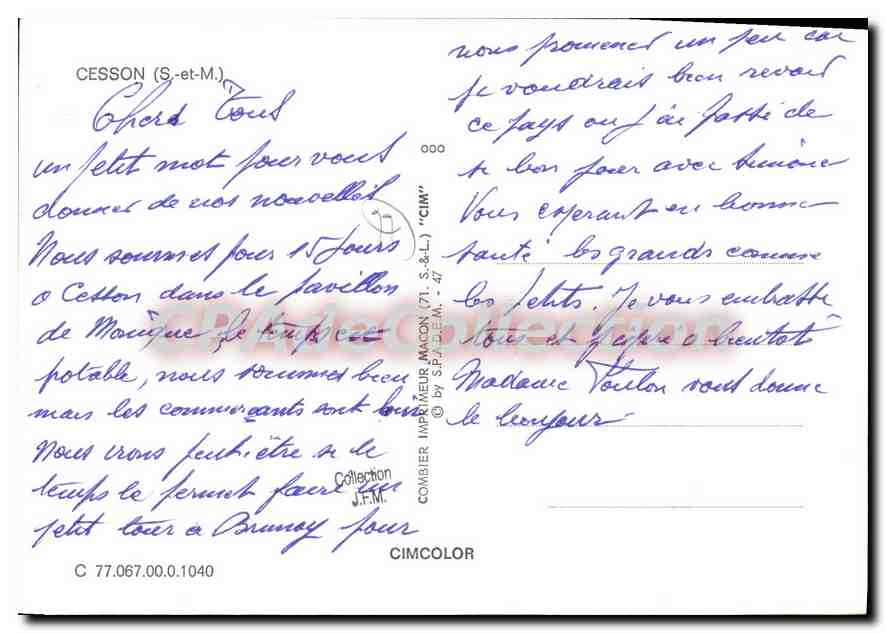 CESSON (S.-et-M.)
Chers Tous
un petit mot pour vous
donner de nos nouvelles
Nous sommes pour 15 Jours
a Cesson dans le pavillon
de Monique, le temps est
potable, nous sommes bien
mais les commerçants sont loin
Nous irons peut être si le
temps le permet faire un
petit tour a Brunoy pour
nous promener un peu car
je voudrais bien revoir
ce pays ou j'ai passé de
si bon jour avec Simone
Vous esperant en bonne
santé les grands comme
les petits. Je vous embrasse
tous et a bientot
Madame Toulon vous donne
le bonjour
77
ooo
COMBIER IMPRIMEUR MACON (71. S.-&-L.) "CIM"
© by S.P.A.D.E.M. - 47
CPArtCollection
Collection
J.F.M.
CIMCOLOR
C 77.067.00.0.1040